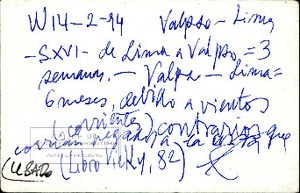 W14-2-94 Valpso - Lima
-SXVI- de Lima a Valpso, = 3
semanas. - Valpa - Lima =
6 meses, debido a vientos
(corriente) contrarios
corrían pegados a la costa que
(Libro Vicky, 82)
(USADO